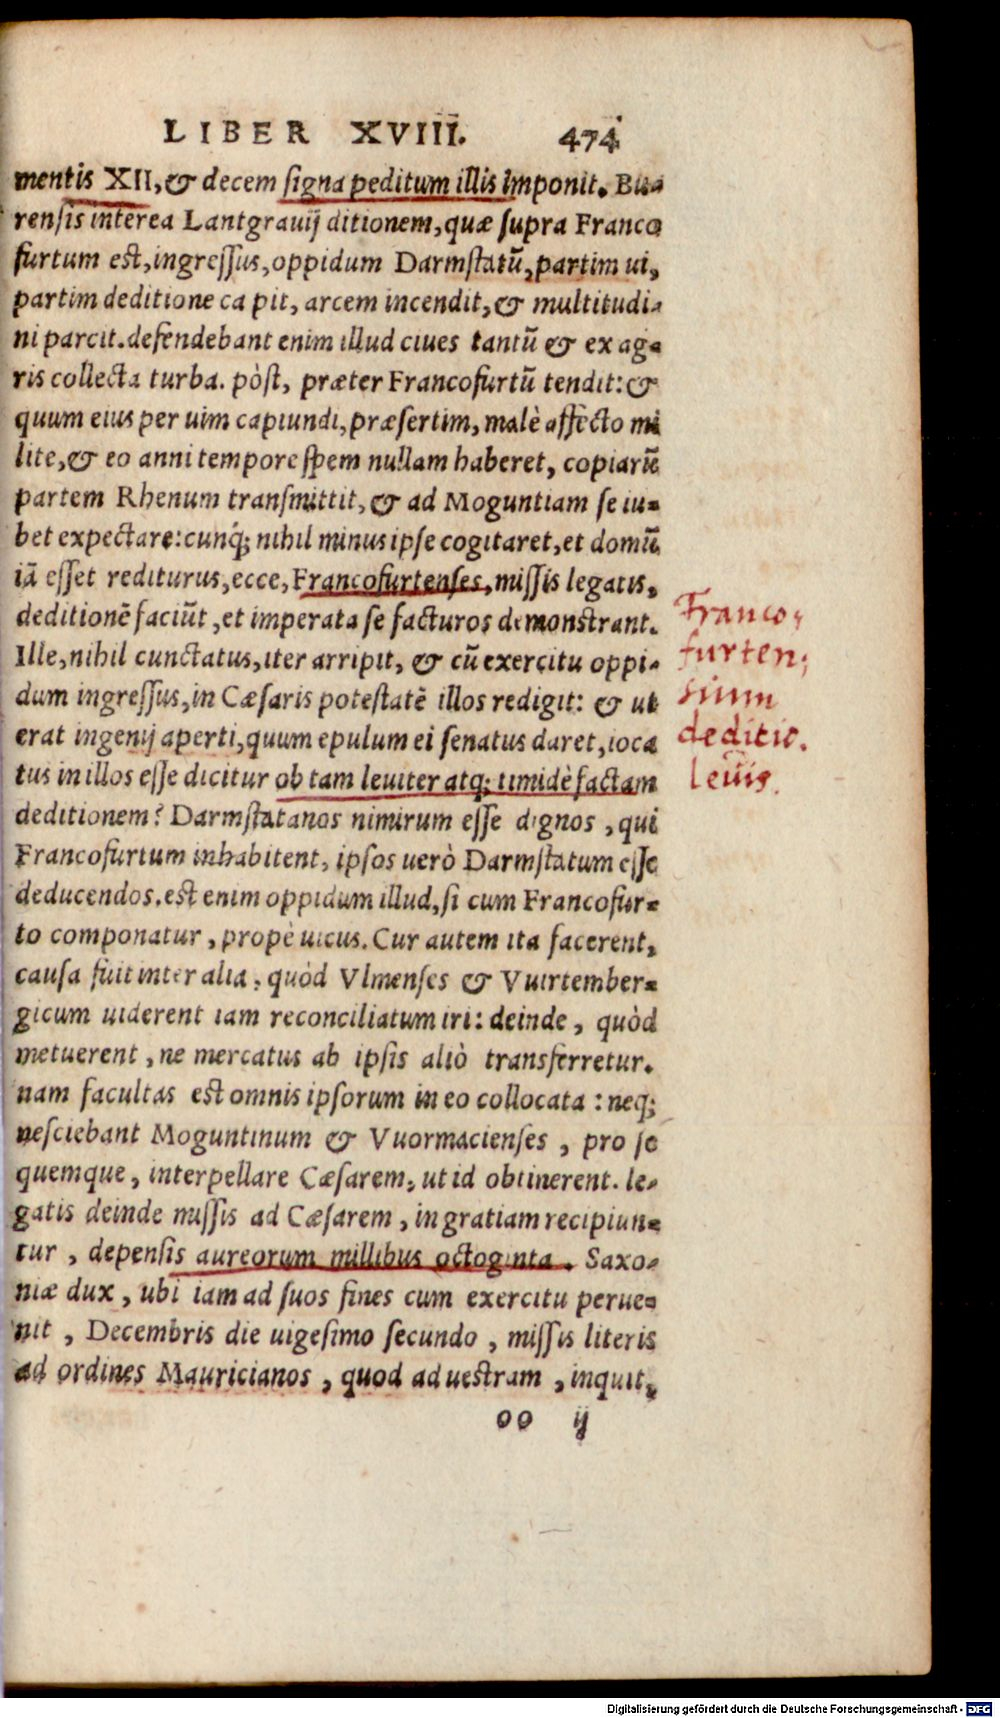 LIBER XVIII. 474
mentis XII, & decem signa peditum illis imponit. Bu-
rensis interea Lantgrauij ditionem, quæ supra Franco
furtum est, ingressus, oppidum Darmstatũ, partim ui,
partim deditione capit, arcem incendit, & multitudi-
ni parcit. defendebant enim illud ciues tantũ & ex ag-
ris collecta turba. pòst, præter Francofurtũ tendit: &
quum eius per uim capiundi, præsertim, malè affecto mi
lite, & eo anni tempore spem nullam haberet, copiarũ
partem Rhenum transmittit, & ad Moguntiam se iu-
bet expectare: cunq́; nihil minus ipse cogitaret, et domũ
iã esset rediturus, ecce, Francofurtenses, missis legatis,
deditionẽ faciũt, et imperata se facturos demonstrant.
Ille, nihil cunctatus, iter arripit, & cũ exercitu oppi-
dum ingressus, in Cæsaris potestatẽ illos redigit: & ut
erat ingenij aperti, quum epulum ei senatus daret, ioca
tus in illos esse dicitur ob tam leuiter atq; timidè factam
deditionem? Darmstatanos nimirum esse dignos, qui
Francofurtum inhabitent, ipsos uerò Darmstatum esse
deducendos. est enim oppidum illud, si cum Francofur-
to componatur, propè uicus. Cur autem ita facerent,
causa fuit inter alia, quòd Vlmenses & Vuirtember-
gicum uiderent iam reconciliatum iri: deinde, quòd
metuerent, ne mercatus ab ipsis aliò transferretur.
nam facultas est omnis ipsorum in eo collocata: neq;
nesciebant Moguntinum & Vuormacienses, pro se
quemque, interpellare Cæsarem, ut id obtinerent. le-
gatis deinde missis ad Cæsarem, in gratiam recipiun-
tur, depensis aureorum millibus octoginta. Saxo-
niæ dux, ubi iam ad suos fines cum exercitu perue-
nit, Decembris die uigesimo secundo, missis literis
ad ordines Mauricianos, quod ad uestram, inquit,
oo ij
Franco-
furten,
sium
deditio.
leuis.
Digitalisierung gefördert durch die Deutsche Forschungsgemeinschaft - DFG